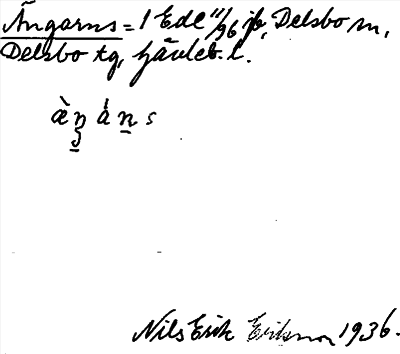 Ängarns = 1 Ede 11/96 jb, Delsbo sn,
Delsbo tg, Gävleb. l.
æ̀ŋ á n s
Nils Erik Eriksson 1936.